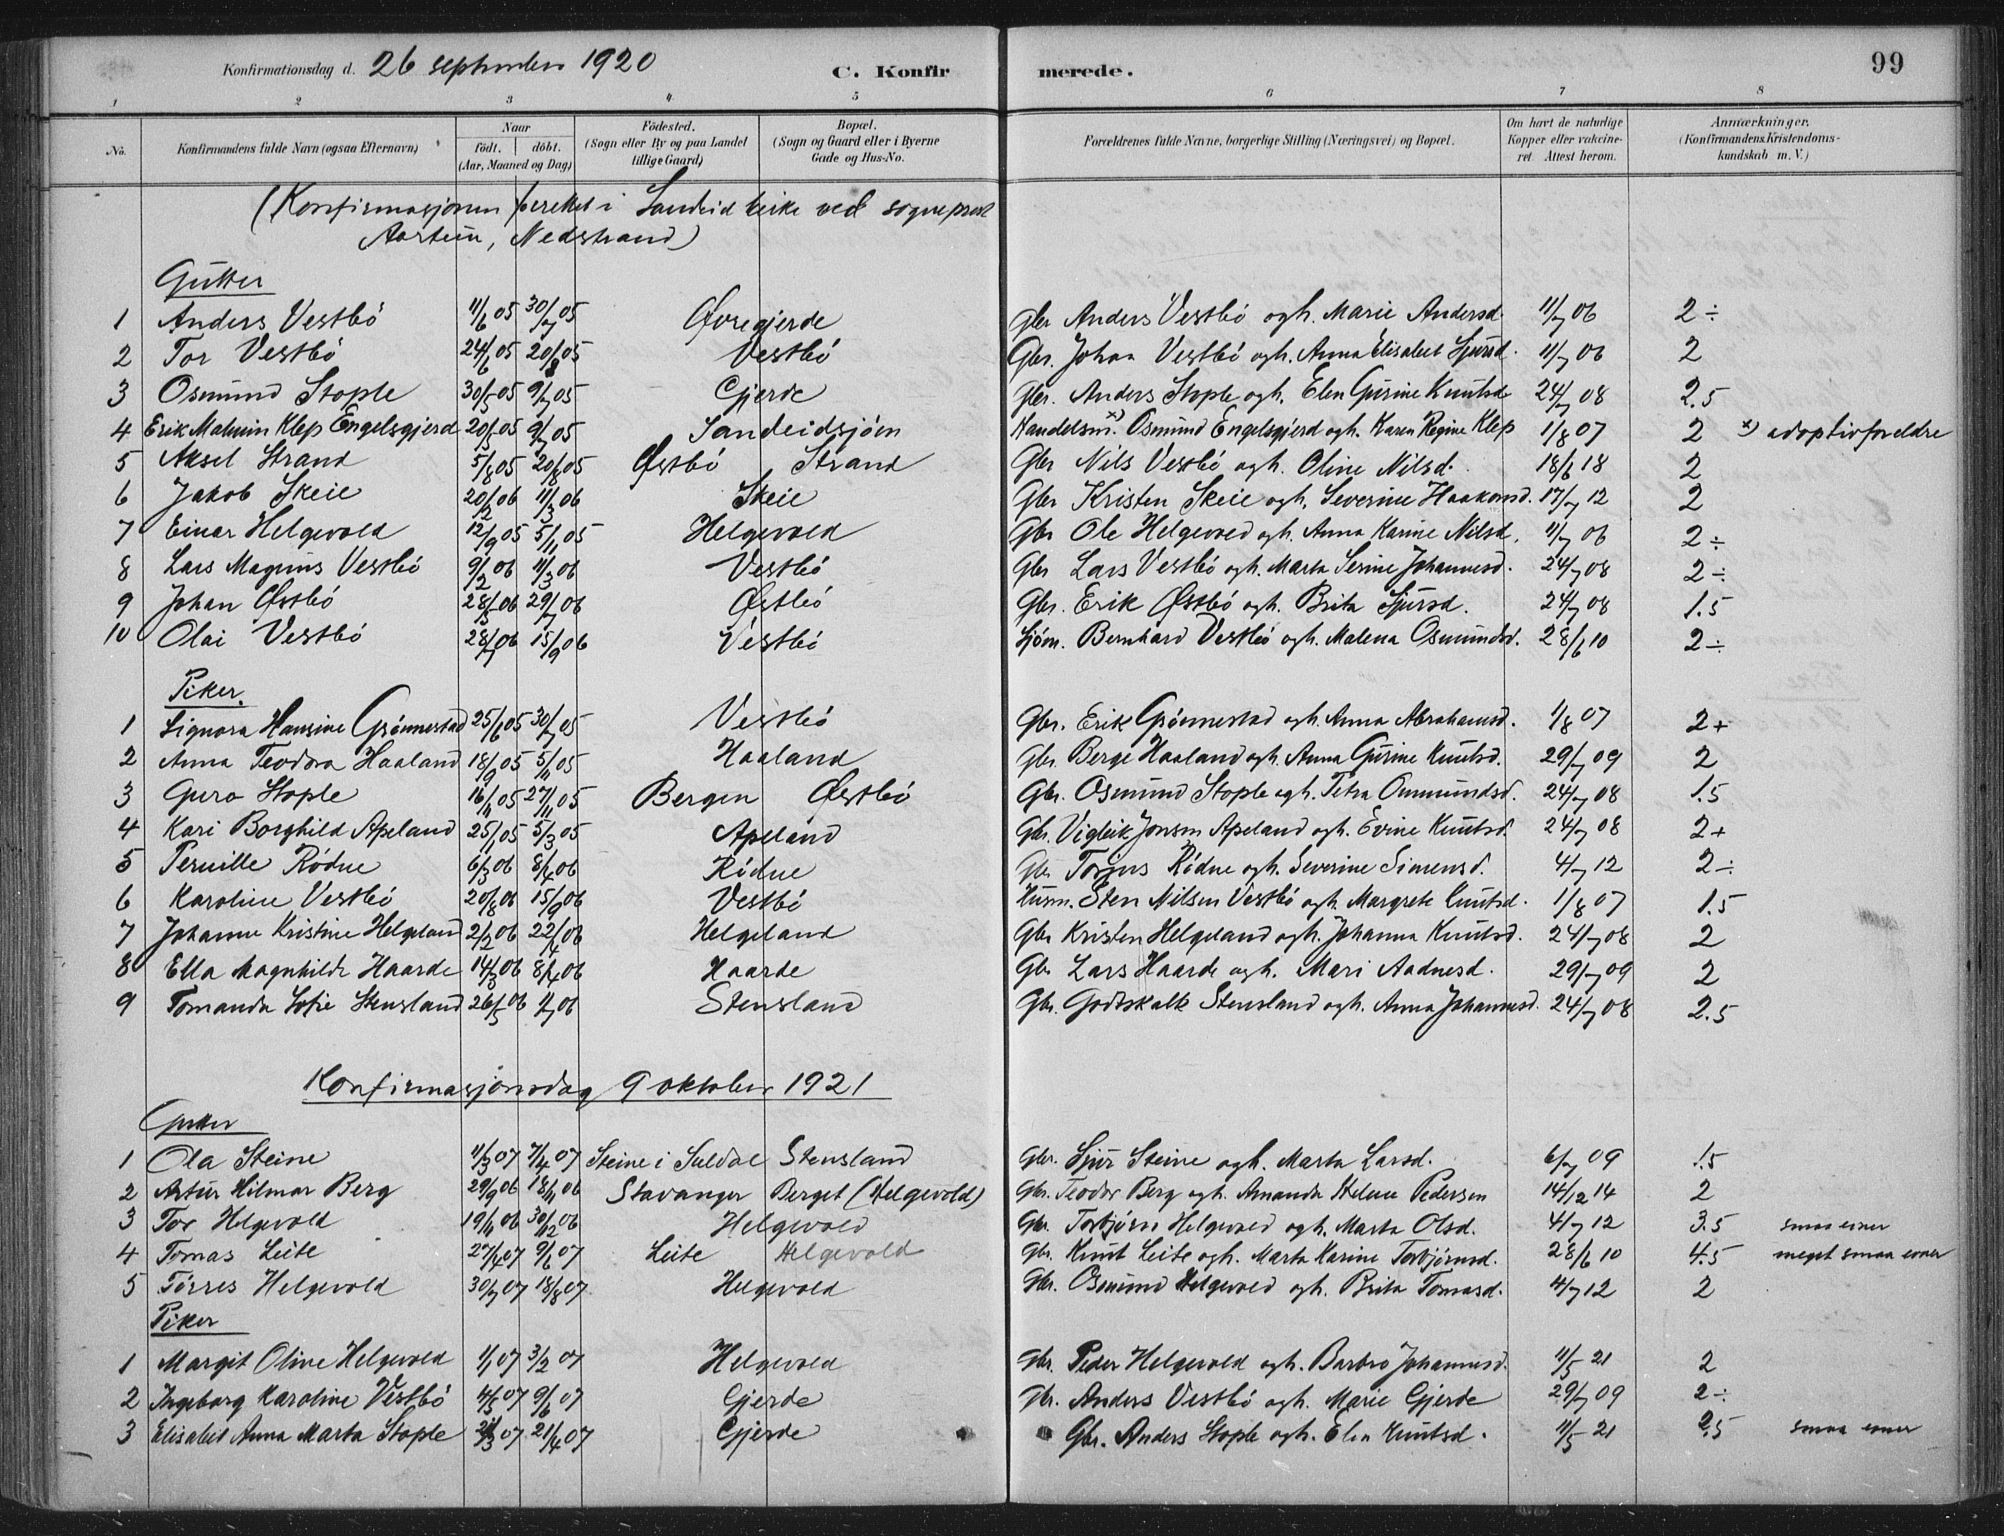 Konfirmationsdag d. 26 september 1920 C. Konfirmerede. 99
1 2 3 4 5 6 7 8
No. Konfirmandens fulde Navn (ogsaa Efternavn) Naar født. døbt. (Aar, Maaned og Dag) Fødested. (Sogn eller By og paa Landet tillige Gaard) Bopæl. (Sogn og Gaard eller i Byerne Gade og Hus-No. Forældrenes fulde Navne, borgerlige Stilling (Næringsvei) og Bopæl. Om havt de naturlige Kopper eller vakcineret Attest herom. Anmærkninger. (Konfirmandens Kristendomskundskab m. V.)
(Konfirmasjonen i Sandeid kirke ved sogneprest
Aarstein, Nedstrand)
Gutter
1 Anders Vestbø 11/6 05 30/7 05 Øvregjerde Gbr Anders Vestbø ogh. Marie Andersd. 11/7 06 2÷
2 Tor Vestbø 24/6 05 20/8 05 Vestbø Gbr. Johan Vestbø ogh. Anna Elisabet Sjursd. 11/7 06 2
3 Osmund Stople 30/5 05 9/7 05 Gjerde Gbr. Anders Stople ogh. Elen Gurine Knutsd 24/7 08 2.5
4 Erik Malmin Klep Engelsgjerd 20/5 05 9/7 05 Sandeidsjøen Handelsm. x) Osmund Engelsgjerd ogh. Karen Regine Klep 1/8 07 2 x) adoptivforeldre
5 Aksel Strand 5/8 05 20/8 05 Østbø Strand Gbr Nils Vestbø ogh. Oline Nilsd. 18/6 18 2
6 Jakob Skeie 20/2 06 11/3 06 Skeie Gbr Kristen Skeie ogh. Severine Haakonsd. 17/7 12 2
7 Einar Helgevold 12/9 05 5/11 05 Helgevold Gbr Ole Helgevold ogh. Anna Karine Nilsd. 11/7 06 2÷
8 Lars Magnus Vestbø 9/2 06 11/3 06 Vestbø Gbr Lars Vestbø ogh. Marta Serine Johannesd. 24/7 08 2÷
9 Johan Østbø 28/5 06 29/7 06 Østbø Gbr. Erik Østbø ogh. Brita Sjursd. 24/7 08 1.5
10 Olai Vestbø 28/7 06 15/9 06 Vestbø Sjøm. Bernhard Vestbø ogh. Malena Osmundsd. 28/6 10 2÷
Piker.
1 Signora Hansine Grønnestad 25/6 05 30/7 05 Vestbø Gbr. Erik Grønnestad ogh. Anna Abrahamsd. 1/8 07 2+
2 Anna Teodora Haaland 18/9 05 5/11 05 Haaland Gbr. Berge Haaland ogh. Anna Gurine Knutsd. 29/7 09 2
3 Guro Stople 16/11 05 27/11 05 Bergen Østbø Gbr. Osmund Stople ogh. Petra Ommundsd. 24/7 08 1.5
4 Kari Borghild Apeland 25/1 05 5/3 05 Apeland Gbr. Vigleik Jonsen Apeland ogh. Evine Knutsd. 24/7 08 2+
5 Pernille Rødne 6/3 06 8/4 06 Rødne Gbr Torjus Rødne ogh. Severine Simensd. 4/7 12 2÷
6 Karoline Vestbø 20/8 06 15/9 06 Vestbø Husm. Sten Nilsen Vestbø ogh. Margrete Knutsd. 1/8 07 1.5
7 Johanne Kristine Helgeland 2/2 06 22/4 06 Helgeland Gbr Kristen Helgeland ogh. Johanna Knutsd. 24/7 08 2
8 Ella Magnhilde Haarde 14/3 06 8/4 06 Haarde Gbr Lars Haarde ogh. Mari Aadnesd. 29/7 09 2
9 Tomanda Sofie Stensland 26/5 06 1/7 06 Stensland Gbr. Godtskalk Stensland ogh. Anna Johannesd. 24/7 08 2.5
Konfirmasjonsdag 9 oktober 1921
Gutter
1 Ola Steine 11/3 07 7/4 07 Steine i Suldal Stensland Gbr. Sjur Steine ogh. Marta Larsd. 6/7 09 1.5
2 Artur Hilmar Berg 29/9 06 18/11 06 Stavanger Berget (Helgevold) Gbr. Teodor Berg ogh. Amanda Helene Pedersen 14/12 14 2
3 Tor Helgevold 19/11 06 30/12 06 Helgevold Gbr. Torbjørn Helgevold ogh. Marta Olsd. 4/7 12 3.5 smaa evner
4 Tomas Leite 27/4 07 9/6 07 Leite Helgevold Gbr. Knut Leite ogh. Marta Karine Torbjørnsd. 28/6 10 4.5 meget smaa evner
5 Tørres Helgevold 30/7 07 18/8 07 Helgevold Gbr. Osmund Helgevold ogh. Brita Tomasd. 4/7 12 2
Piker
1 Margit Oline Helgevold 1/1 07 3/2 07 Helgevold Gbr. Peder Helgevold ogh. Barbro Johannesd. 11/5 21 2
2 Ingeborg Karoline Vestbø 4/5 07 9/6 07 Gjerde Gbr. Anders Vestbø ogh. Marie Gjerde 29/7 09 2÷
3 Elisabet Anna Marta Stople 07 21/4 07 Gjerde Gbr. Anders Stople ogh. Elen Knutsd. 11/5 21 2.5 smaa evner